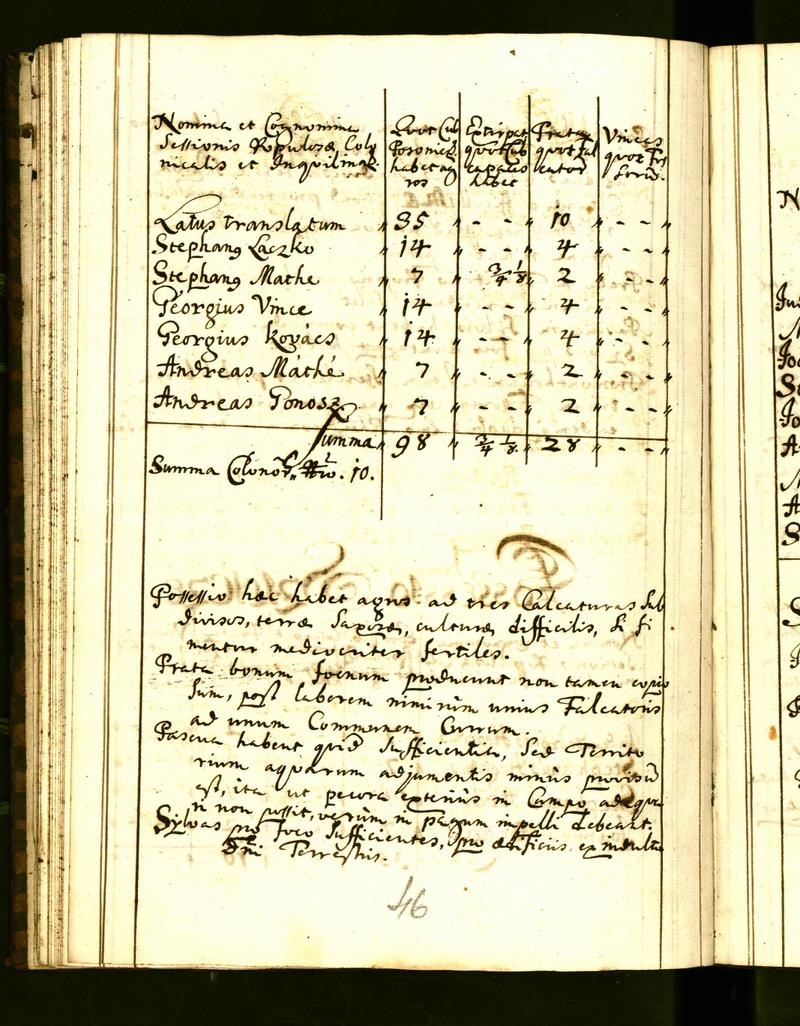 Nomina et Cognomina Quot Cub Extirpat Prata Vineas
Sessionis Populosæ Colo Posoniens quot Cub quot Fal quot Fos
nicalis et Inquilinar. habet ag culares cator Sorum.
ros habet
Latus translatum " 35 " - - " 10 " - - "
Stephang Laczko " 14 " - - " 4 " - - "
Stephang Mathe " 7 " 3/4 1/8 " 2 " - - "
Georgius Vince " 14 " - - " 4 " - - "
Georgius Kovács " 14 " - - " 4 " - - "
Andreas Máthé " 7 " - - " 2 " - - "
Andreas Gonosz " 7 " - - " 2 " - - "
Summa " 98 " 3/4 1/8 " 28 " - - "
Summa Colonor. 10.
Possessio hæc habet agros ad tres Calcaturas Sub
divisos, terræ Saxosæ, culturæ difficilis, si fi
mentur mediocriter fertiles.
Prata bonum foenum producunt non tamen copio
sum, post laborem nimirum unius Falcatoris
ad unum Communem Currum.
Pascua habent quid sufficientia, sed Territo
rium aquarum adjumentis minus provisū
est, ita ut pecora exterius in Campo adaqua
ri non possit, verum in pagum impelli debeant.
Sylvas pro foco sufficientes, pro ædificiis ex indultu
Dni Terrestris.
46